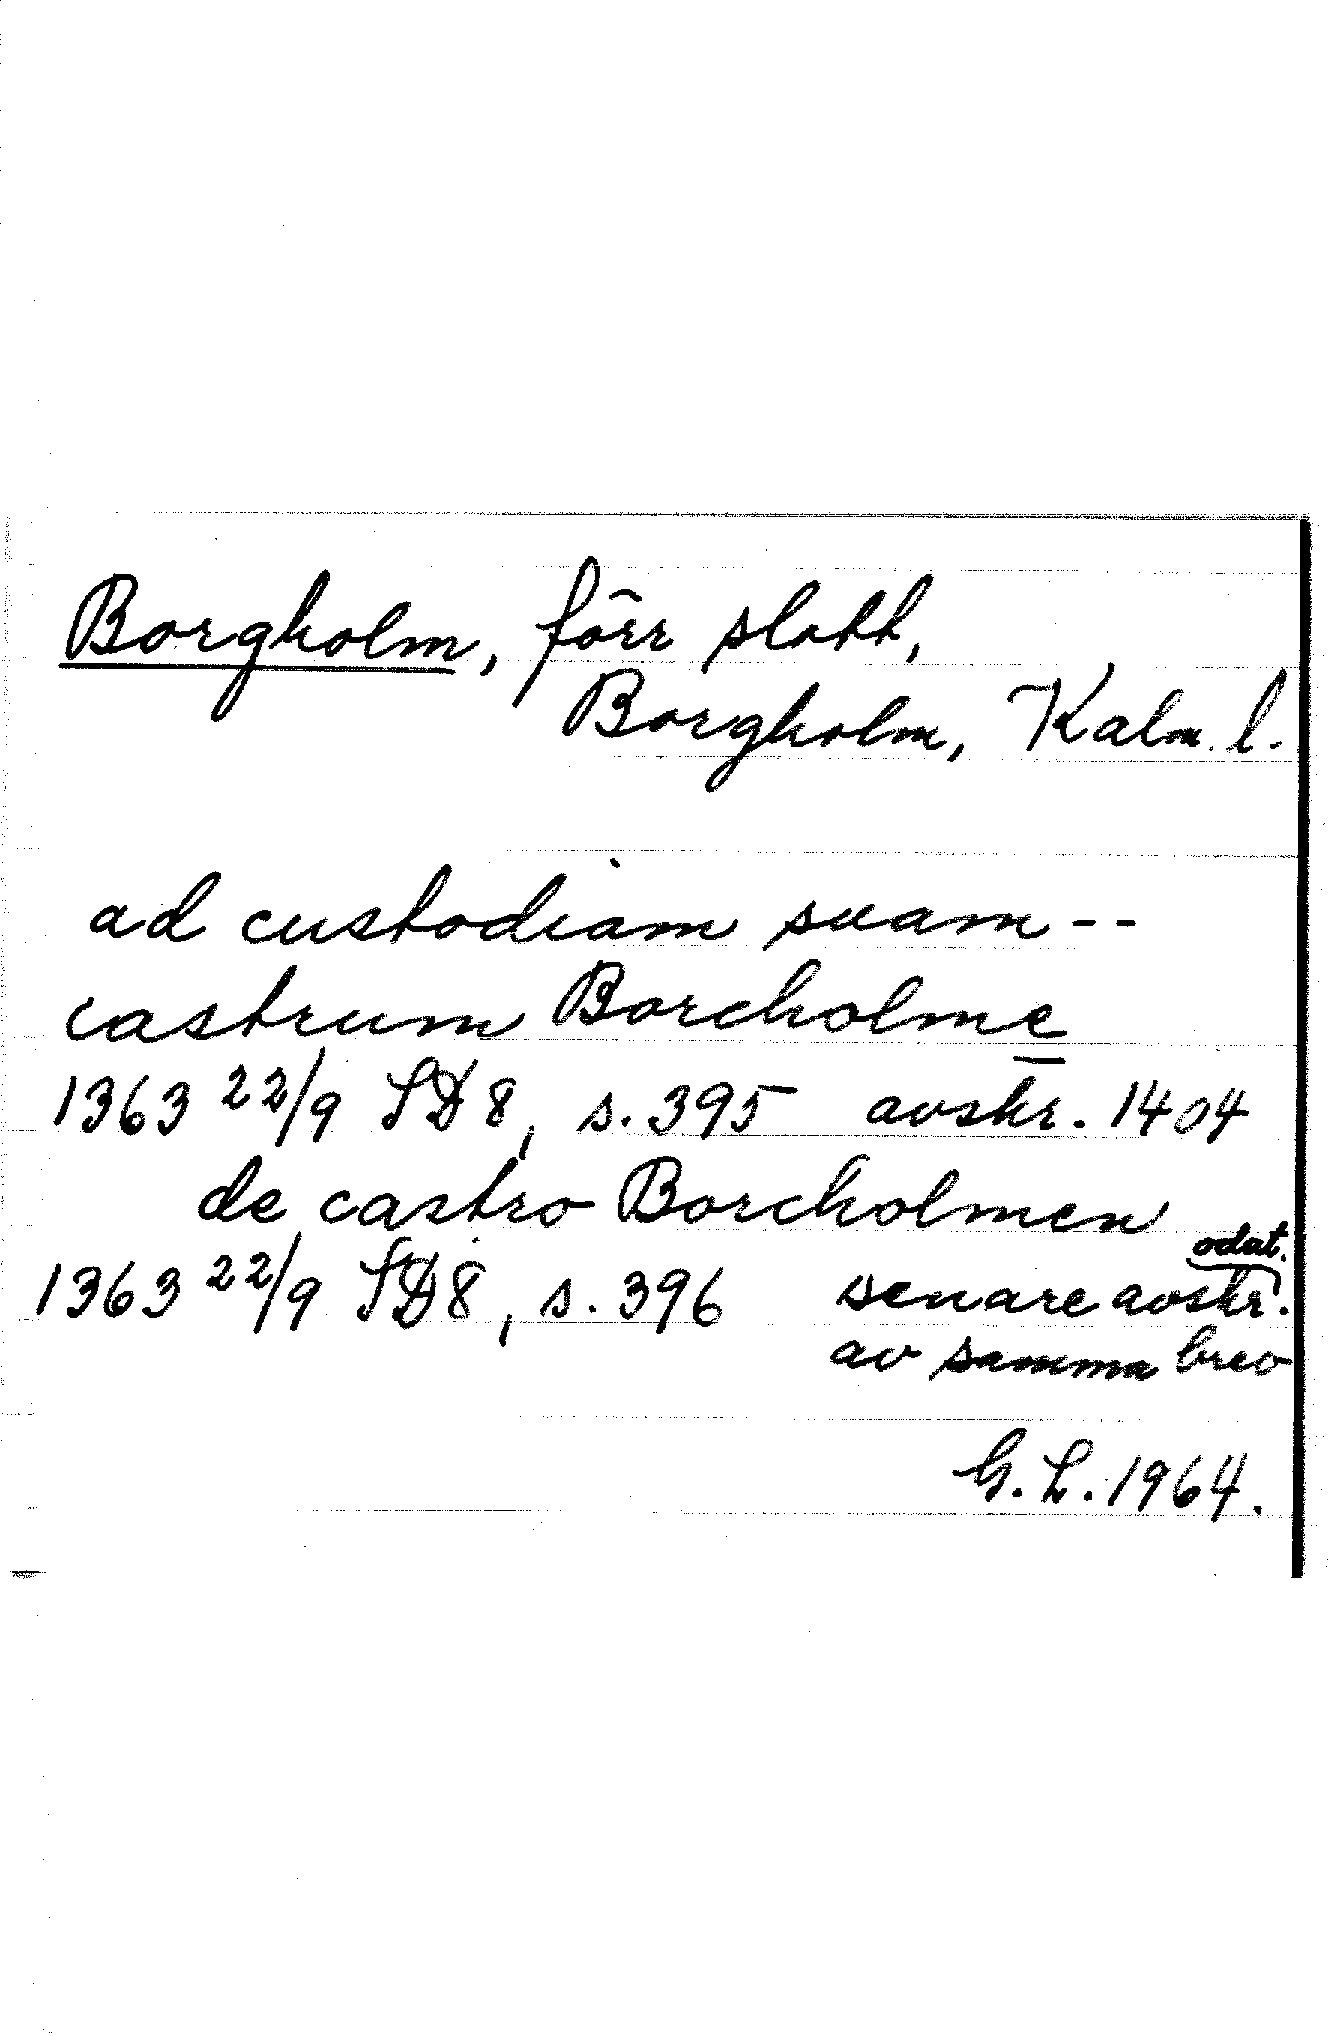 Borgholm, förr slott,
Borgholm, Kalm. l.
ad custodiam suam --
castrum Borcholme
1363 22/9 SD 8, s. 395 avskr. 1404
de castro Borcholmen
odat.
1363 22/9 SD 8, s. 396 senare avskr.
av samma brev
G. L. 1964.